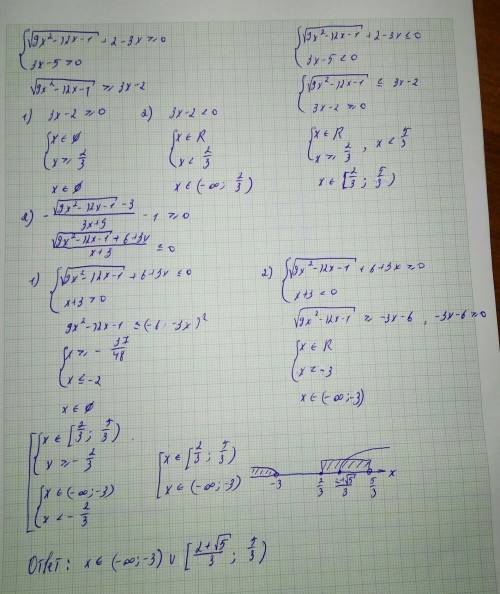 { √(9x²-12x-1) + 2-3x ≥ 0
{ 3x-5 > 0
√(9x²-12x-1) ≥ 3x-2
1) 3x-2 ≥ 0 2) 3x-2 < 0
{ x ∈ ∅ { x ∈ R
{ x ≥ 2/3 { x < 2/3
x ∈ ∅ x ∈ (-∞; 2/3)
{ √(9x²-12x-1) + 2-3x ≤ 0
{ 3x-5 < 0
{ √(9x²-12x-1) ≤ 3x-2
{ 3x-2 ≥ 0
{ x ∈ R
{ x ≥ 2/3 , x < 5/3
x ∈ [2/3; 5/3)
2) - (√(9x²-12x-1) - 3)/(3x+9) - 1 ≥ 0
(√(9x²-12x-1) + 6+3x)/(x+3) ≤ 0
1) { √(9x²-12x-1) + 6+3x ≤ 0
{ x+3 > 0
9x²-12x-1 ≤ (-6-3x)²
{ x ≥ - 37/48
{ x ≤ -2
x ∈ ∅
2) { √(9x²-12x-1) + 6+3x ≥ 0
{ x+3 < 0
√(9x²-12x-1) ≥ -3x-6 , -3x-6 ≥ 0
{ x ∈ R
{ x < -3
x ∈ (-∞; -3)
[ { x ∈ [2/3; 5/3)
{ x ≥ - 2/3
{ x ∈ (-∞; -3)
{ x < - 2/3
[ x ∈ [2/3; 5/3)
x ∈ (-∞; -3)
-3 2/3 (2+√5)/3 5/3 x
Ответ: x ∈ (-∞; -3) ∪ [(2+√5)/3 ; 5/3)